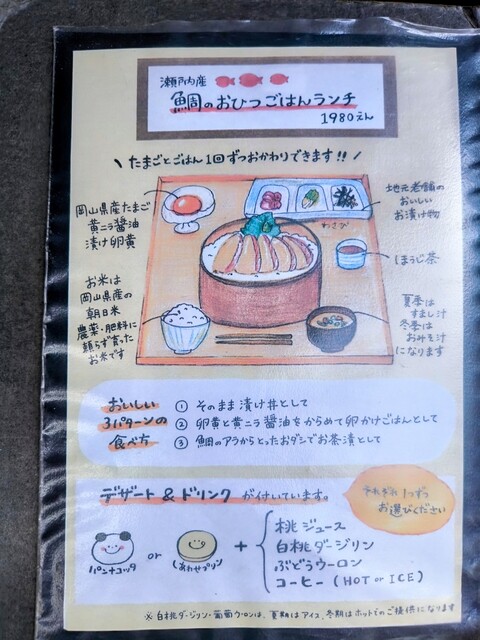 瀬戸内産
鯛のおひつごはんランチ
1980えん
\ たまごとごはん1回ずつおかわりできます!! /
岡山県産たまご
黄ニラ醤油
漬け卵黄
地元老舗の
おいしい
お漬け物
わさび
ほうじ茶
お米は
岡山県産の
朝日米
農薬・肥料に
頼らず育った
お米です
夏季は
すまし汁
冬季は
おみそ汁
になります
おいしい
3パターンの
食べ方
① そのまま漬け丼として
② 卵黄と黄ニラ醤油をからめて卵かけごはんとして
③ 鯛のアラからとったおダシでお茶漬として
デザート & ドリンク が付いています。
それぞれ1つずつ
お選びください
パンナコッタ or しあわせプリン +
桃ジュース
白桃ダージリン
ぶどうウーロン
コーヒー (HOT or ICE)
※白桃ダージリン・葡萄ウーロンは、夏期はアイス、冬期はホットでのご提供になります